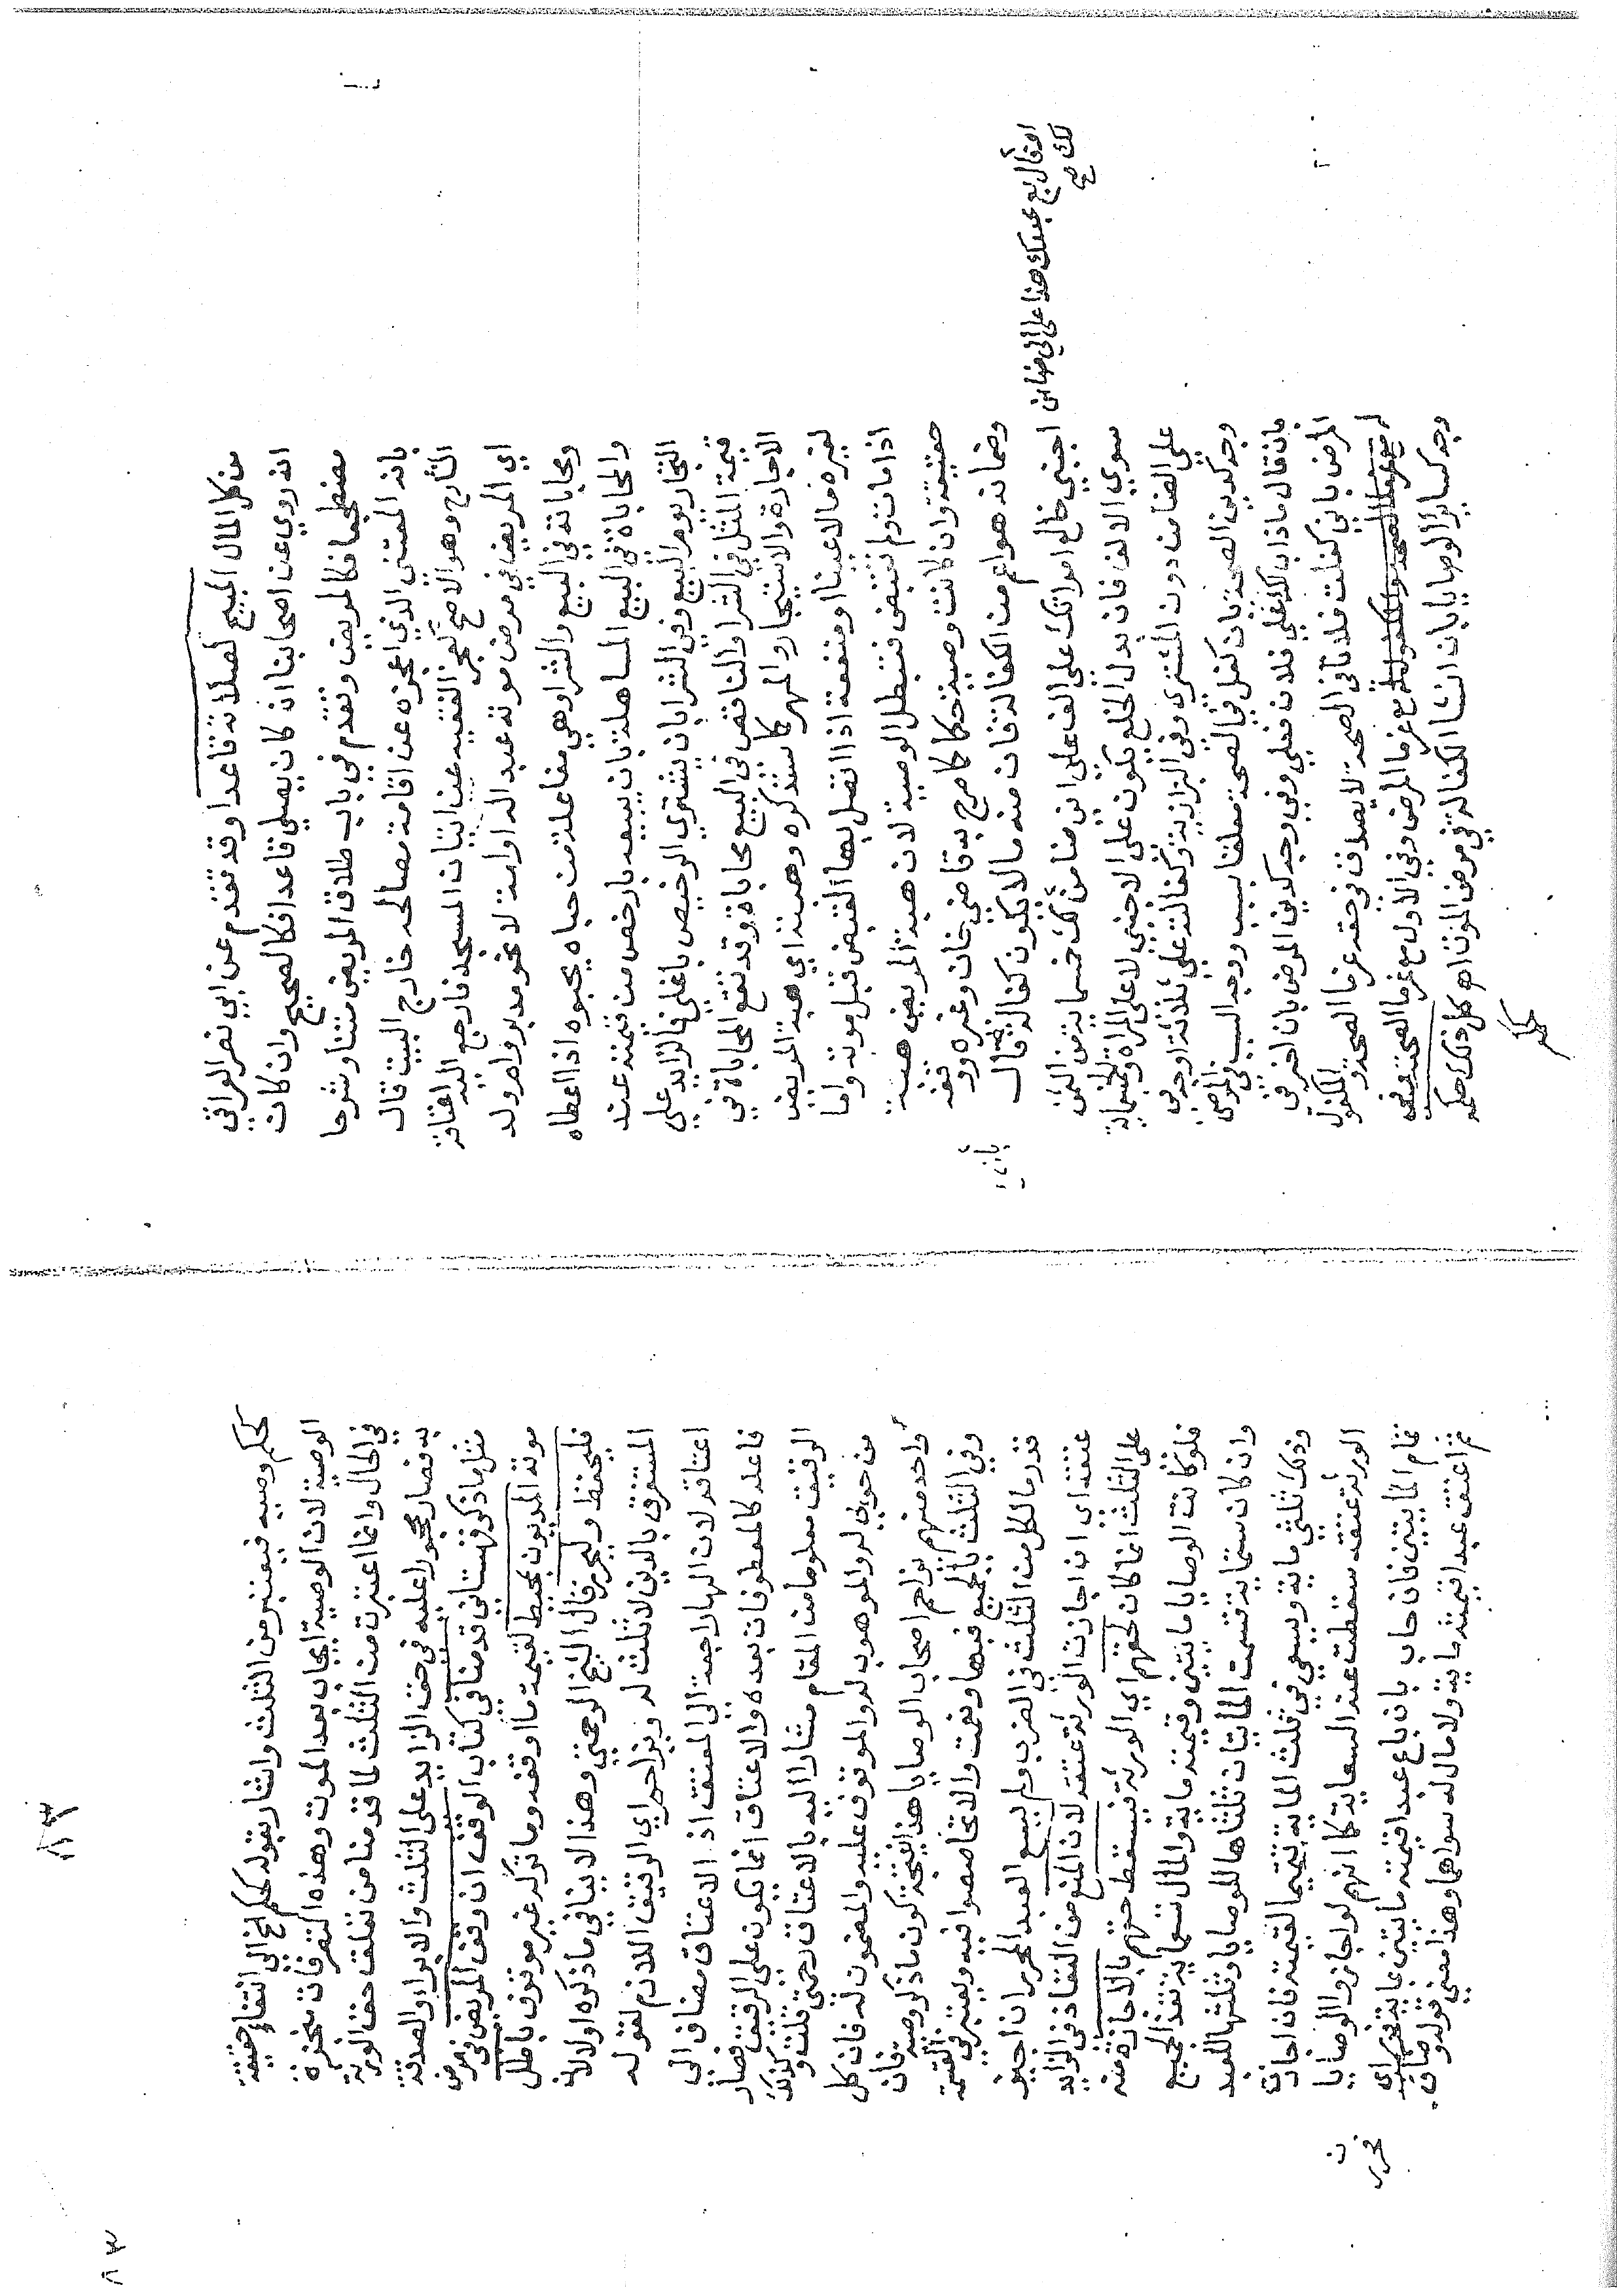 من كل المال المبيح لصلاته قاعدا وقد تقدم عن ابي نصر العراقي
انه روي عن اصحابنا انه كان يصلي قاعدا فكالصحيح وان كان
مضطجعا فكالمريض وتقدم في باب طلاق المريض متنا وشرحا
بانه المضنى الذي اعجزه عن اقامة مصالحه خارج البيت قال
الشارح وهو الاصح كعجز الفقيه عن اتيان المسجد فارجع اليه اعتاقه
اي المريض في مرض موته عبد او امة لا نحو مدبر وام ولد
ومحاباته في البيع والشرا وهي مفاعلة من حباه يحبوه اذا اعطاه
والمحاباة في البيع المساهلة بان يبيعه بارخص من قيمته عند
التجار يوم البيع وفي الشرا بان يشتري الرخيص باغلى فالزايد على
قيمة المثل في الشرا والناقص في البيع محاباة وقد تقع المحاباة في
الاجارة والاستيجار والمهر كما سنذكره وهبته اي هبة المريض
لغيره مالا عينا او منفعة اذا اتصل بها القبض قبل موته واما
اذا مات ولم تقبض فتبطل الوصية لان هبة المريض هبة
حقيقة وان كانت وصية حكما كما صرح به قاضي خان وغيره ووقفه
وضمانه هو اعم من الكفالة فان منه مالا يكون كفالة بان قال
اجنبي خالع امراتك على الف على اني ضامن لك خمسماية من الثمن
او قال بع عبدك هذا على اني ضامن
لك صح
سوي الالف فان بدل الخلع يكون على الاجنبي لا على المراة والخمسماية
على الضامن دون المشتري وفي البزازية وكفالته على ثلاثة اوجه في
وجه كدين الصحة بان كفل في الصحة معلقا بسبب ووجد السبب في المرض
بان قال ماذاب لك على فلان فعلي وفي وجه كدين المرض بان اخبر في
المرض باني كفلت فلانا في الصحة لا يصدق في حق غرما الصحة والمكفول
له مع غرما المرض وفي الاول مع غرما الصحة وفي
وجه كساير الوصايا بان انشا الكفالة في مرض الموت اه كل ذلك حكمه
كحكم
٨٣
كحكم وصيه فيعتبر من الثلث واشار بقوله كحكم الخ الي انتفاء حقيقة
الوصية لان الوصية ايجاب بعد الموت وهذه التصرفات منجزة
في الحال وانما اعتبرت من الثلث لما قدمنا من تعلق حق الورثة
به فصار محجورا عليه في حق الزايد على الثلث والابراء والصدقة
مثل ما ذكر قهستاني قدمنا في كتاب الوقف ان وقف المريض في مرض
موته المديون بمحيط لقيمة ما اوقفه وما ترك غير موقوف باطل
فليحفظ وليحرر قال الشيخ الرحمتي وهذا لا ينافي ما ذكره اولا لان
المستغرق بالدين لا ثلث له ويزاحم اي الرقيق اللازم لقوله
اعتاقه لان الهاء راجعة الى المعتق اذ الاعتاق مضاف الى
فاعله كالمعطوفات بعده والاعتاق انما يكون على الرقيق فصار
الرقيق معلوما من المقام مشارا اليه بالاعتاق رحمتي قلت وكذلك
من حوبي له والموهوب له والموقوف عليه والمضمون له فان كل
واحد منهم يزاحم اصحاب الوصايا هذا نتيجة كون ما ذكر وصية فان
وفي الثلث بالجميع فبها ونعمت والا تحاصصوا فيه ويعتبر في القسمة
قدر ما لكل من الثلث في الضرب ولم يسع العبد المحرر ان اجيز
عتقه اي ان اجازت الورثة عتقه لان المنع من النفاذ في الزايد
على الثلث انما كان لحقهم اي الورثة فيسقط حقهم بالاجازة منه
فلو كانت الوصايا مايتين وقيمته ماية والمال تسعماية تنفذ الجميع
وان كان ستماية قسمت المايتان ثلثاها للوصايا وثلثها للعبد
وذلك ثلثي ماية ويسعى في ثلث الماية تتميما لقيمته فان اجازت
الورثة عتقه سقطت عنه السعاية كما انهم لو اجازوا الوصايا
تمام المايتين فان حابا بان باع عبدا قيمته مايتين بماية فحرر اي
ثم اعتق عبدا قيمته ماية ولا مال له سواهما وهذا معنى قوله وضاق
٨٣